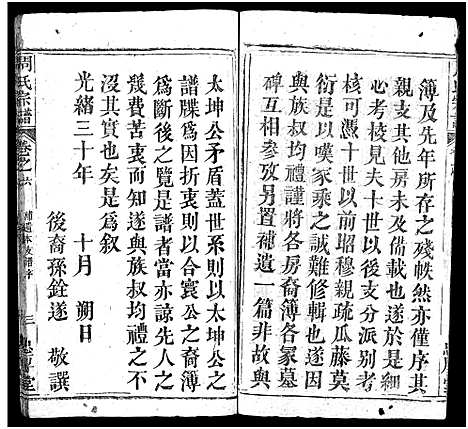 簿及先年所存之殘帙然亦僅序其
親支其他房未及請載也遂於是細
心考稜見夫十世以後支分派别者
核可憑十世以前昭穆親疏瓜藤莫
衍是以嘆家乘之誠難修輯也遂偶
於暇日將各房裔簿各家墓
圖互相參攷另置補遺一篇非故與
太坤公矛盾蓋世系則以太坤公之
譜牒為因折衷則以合寰公之裔簿
為斷後之覽是譜者當亦諒先人之
幾費苦衷而知遂與族叔均禮之不
沒其實也矣是為叙
光緒三十年 十月 朔日
後裔孫銓遂 敬譔
周氏宗譜
卷之六
三